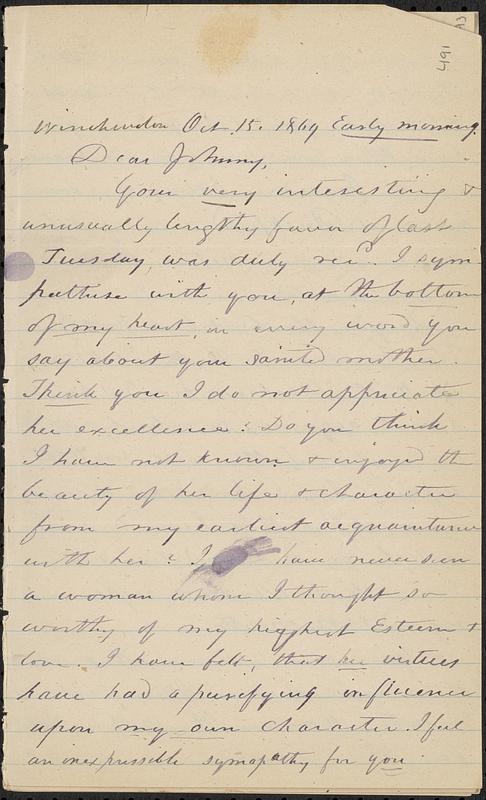 491
A3
Winchendon Oct. 15. 1869 Early morning.
Dear Johnny,
Your very interesting &
unusually lengthy favor of last
Tuesday, was duly rec'd. I sym-
pathise with you, at the bottom
of my heart, in every word you
say about your sainted mother.
Think you I do not appreciate
her excellence? Do you think
I have not known & enjoyed the
beauty of her life & character
from my earliest acquaintance
with her? I have never seen
a woman whom I thought so
worthy of my highest Esteem &
love. I have felt, that her virtues
have had a purifying influence
upon my own character. I feel
an inexpressible sympathy for you